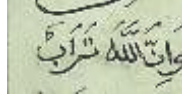 وَاَنَّ اللّٰهَ تَوَّابٌ